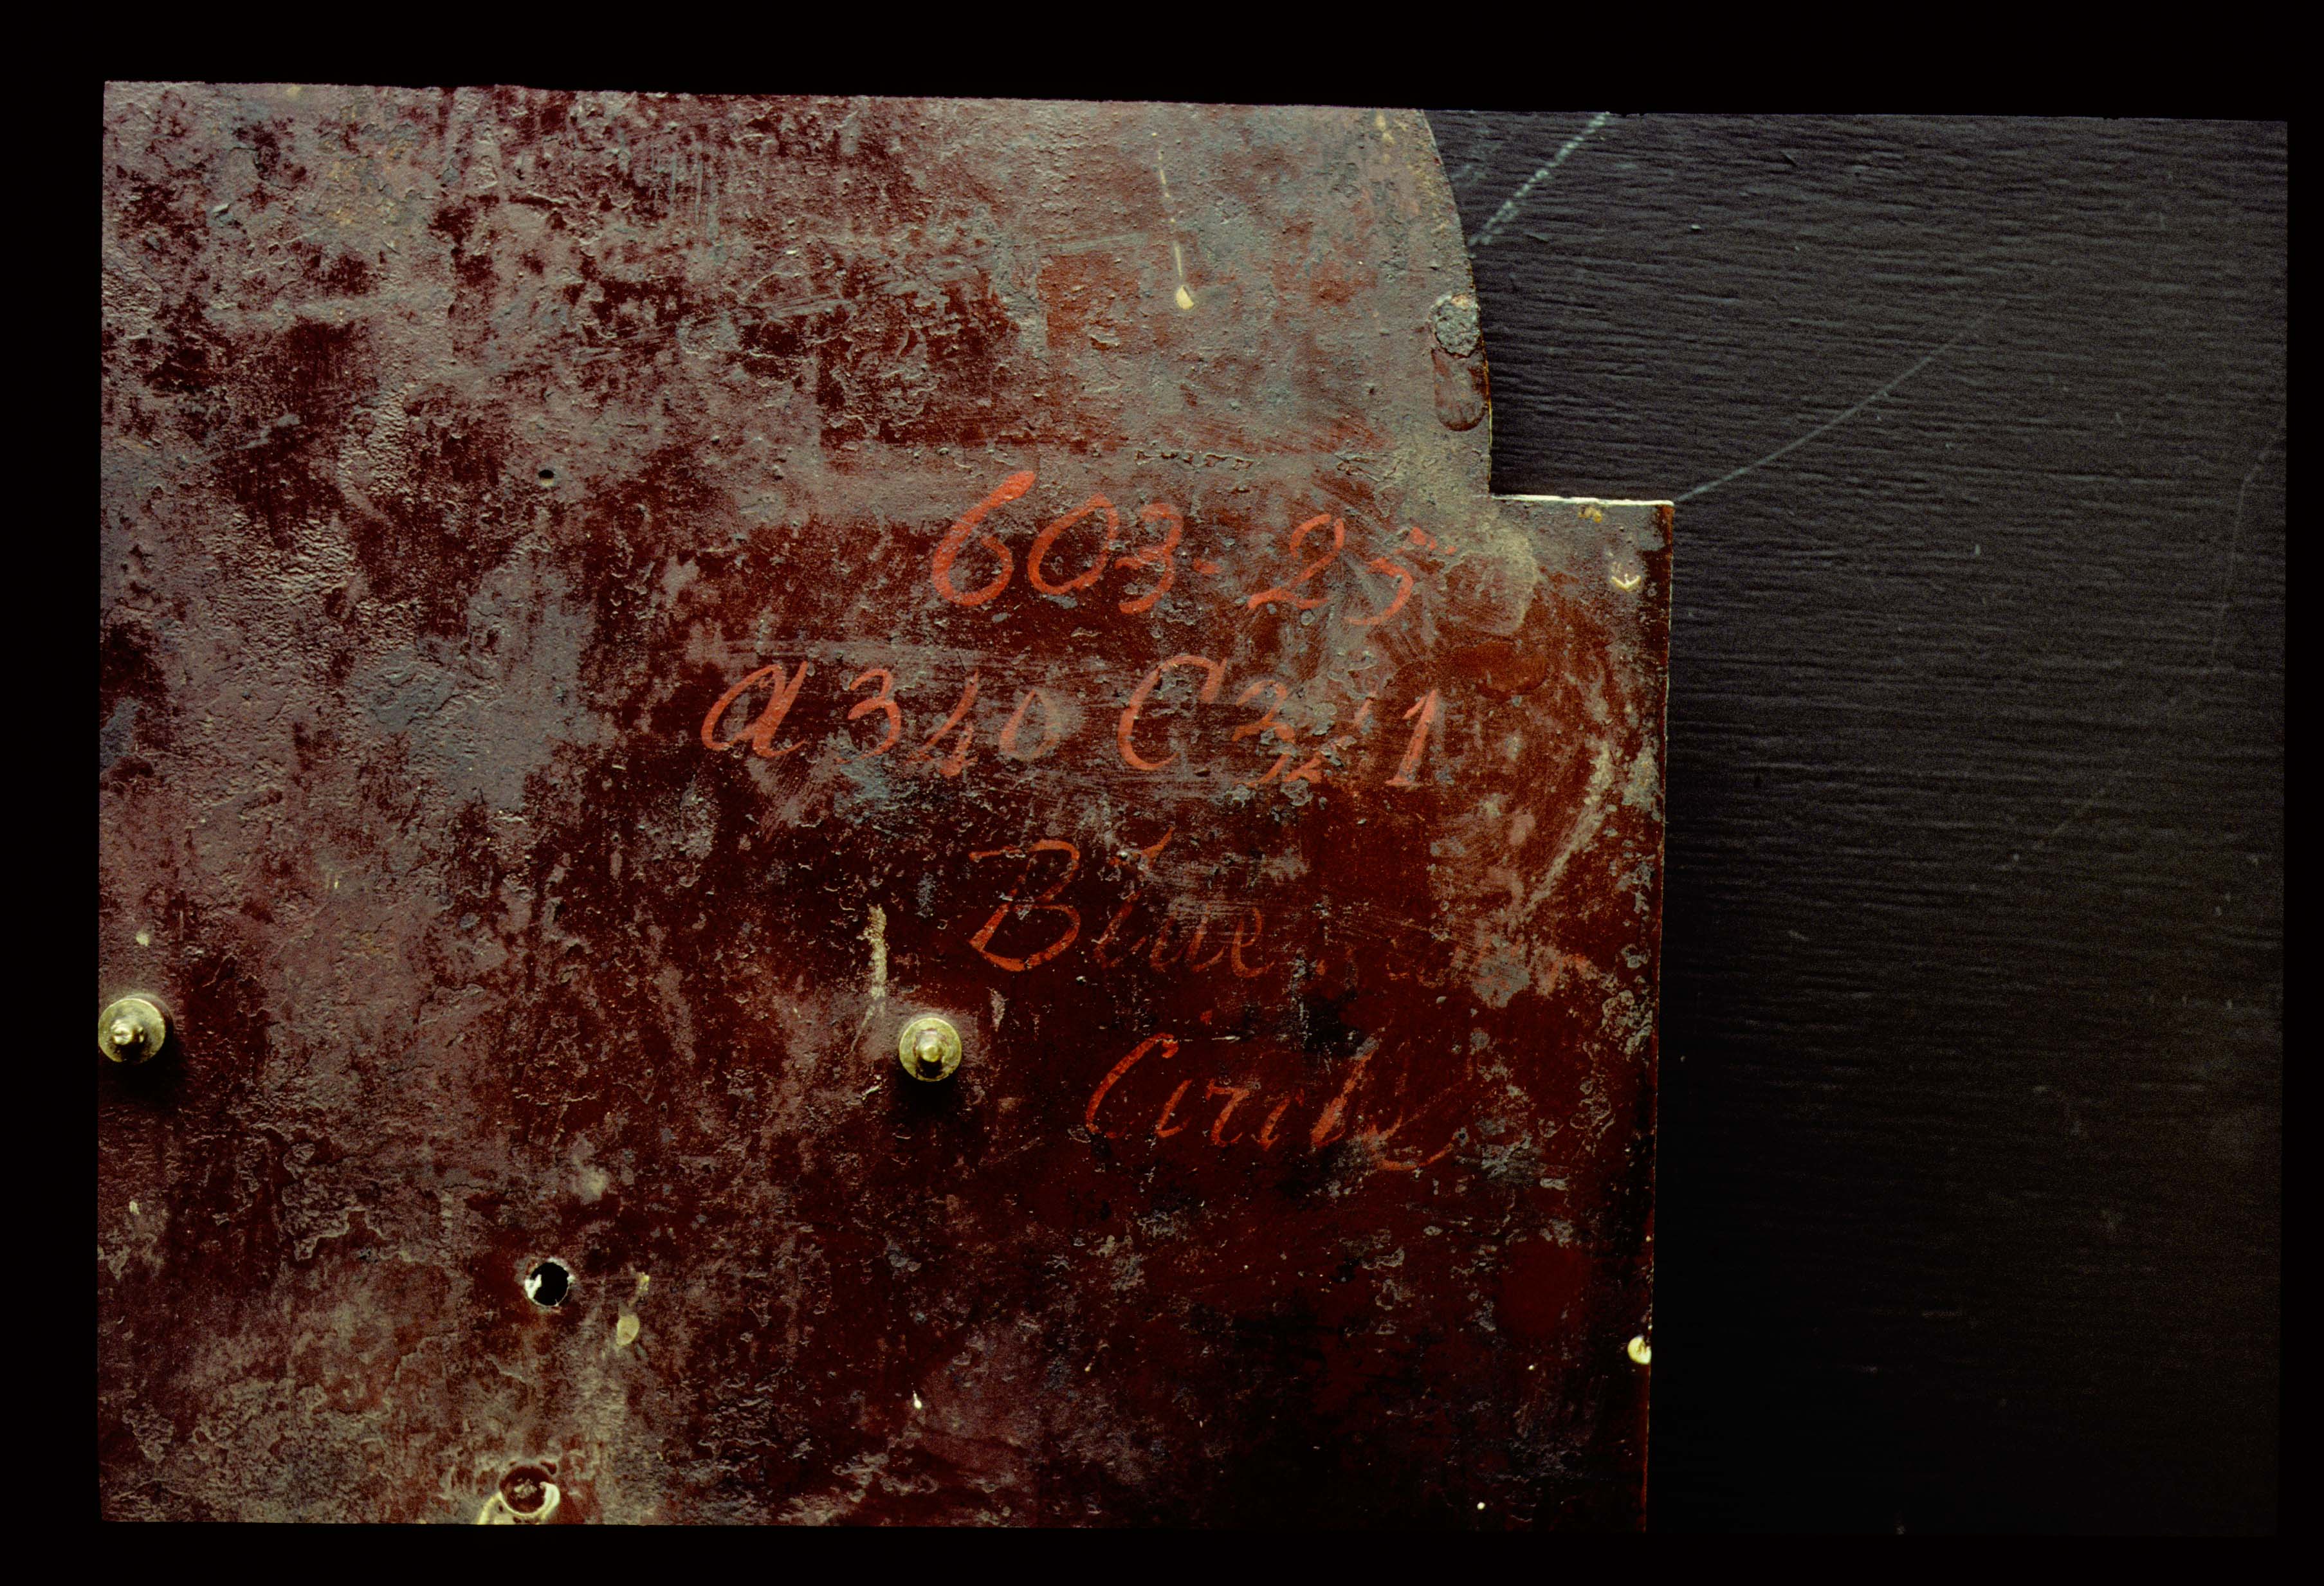 603-25
a 340 C 3 1
Blue
Circle